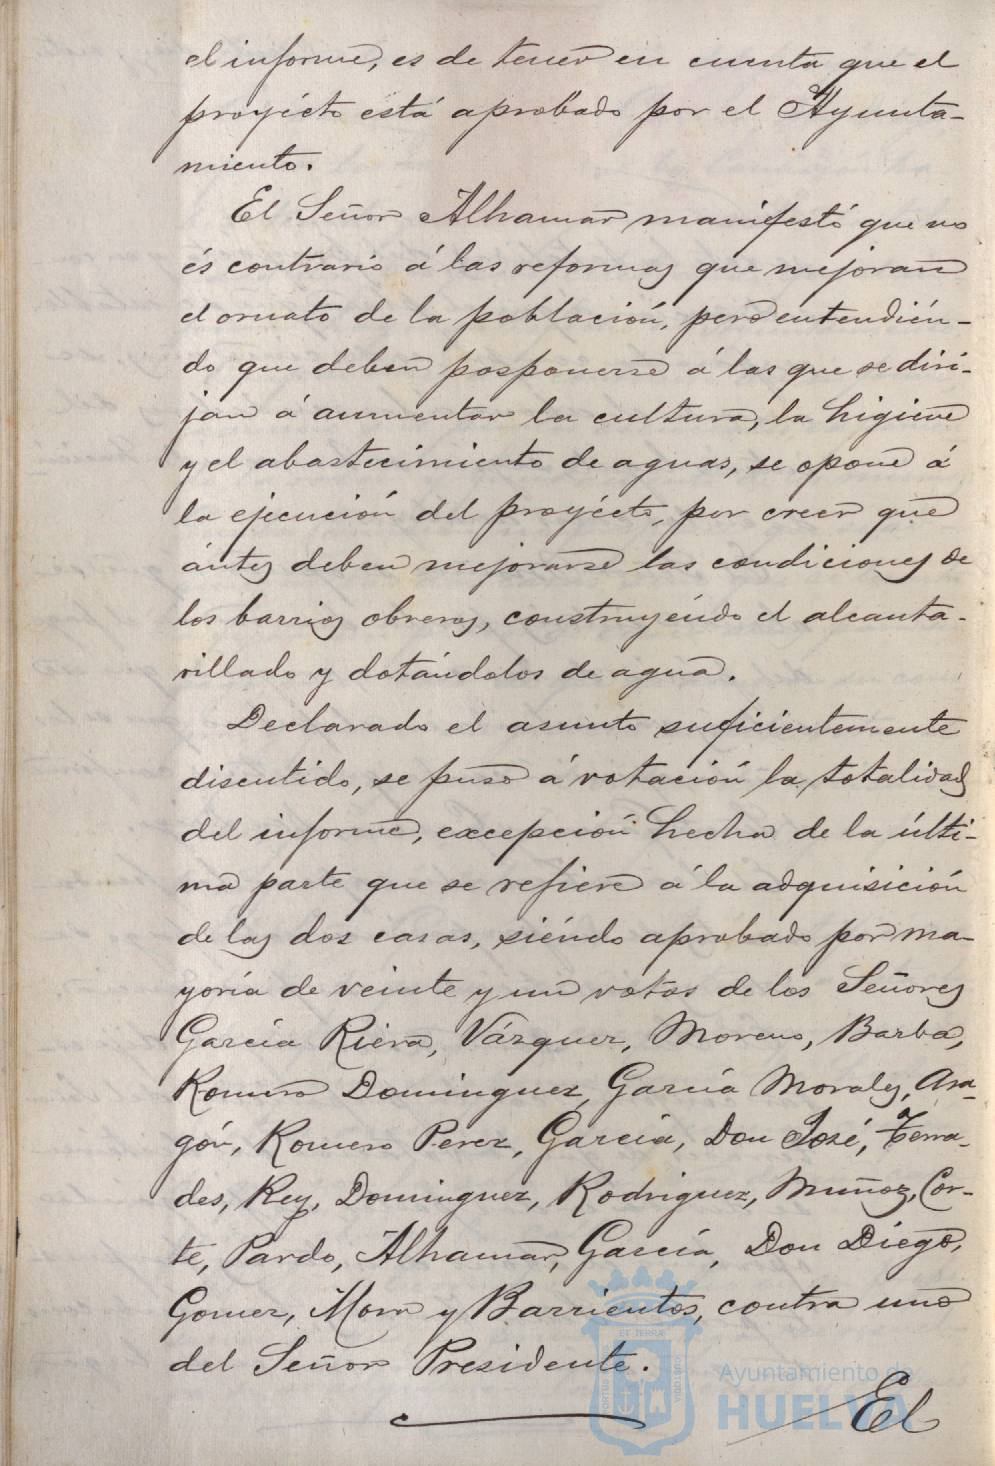 el informe, es de tener en cuenta que el
proyécto está aprobado por el Ayunta-
miento.
El Señor Alhamar manifestó que no
és contrario á las reformas que mejoran
el ornato de la población, pero entendién-
do que deben posponerse á las que se diri-
jan á aumentar la cultura, la higiene
y el abastecimiento de aguas, se opone á
la ejecución del proyécto, por creer que
ántes deben mejorarse las condiciones de
los barrios obreros, construyéndo el alcanta-
rillado y dotándolos de agua.
Declarado el asunto suficientemente
discutido, se puso á votación la totalidad
del informe, excepción hecha de la últi-
ma parte que se refiere á la adquisición
de las dos casas, siéndo aprobado por ma-
yoría de veinte y un votos de los Señores
García Riera, Vázquez, Moreno, Barba,
Romero Dominguez, García Morales, Ara-
gón, Romero Perez, García, Don José, Terra-
des, Rey, Dominguez, Rodriguez, Muñoz, Cor-
te, Pardo, Alhamar, García, Don Diego,
Gomez, Mora y Barrientos, contra uno
del Señor Presidente.
El
ET TERRÆ
PORTUS
CUSTODIA
Ayuntamiento de
HUELVA